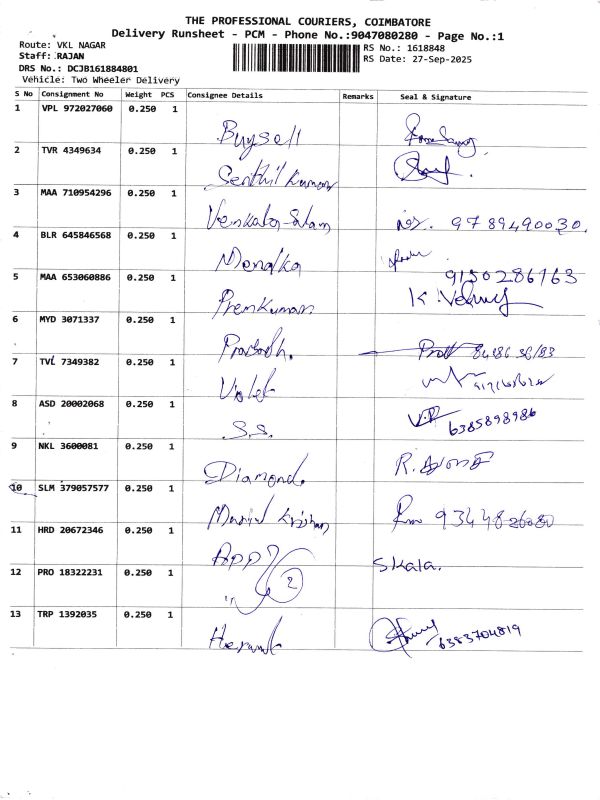 THE PROFESSIONAL COURIERS, COIMBATORE
Delivery Runsheet - PCM - Phone No.:9047080280 - Page No.:1
Route: VKL NAGAR
RS No.: 1618848
Staff: RAJAN
RS Date: 27-Sep-2025
DRS No.: DCJB161884801
Vehicle: Two Wheeler Delivery
S No Consignment No Weight PCS Consignee Details Remarks Seal & Signature
1 VPL 972027060 0.250 1 Buysell
2 TVR 4349634 0.250 1 Senthil Kumar
3 MAA 710954296 0.250 1 Venkata Salam 9789490030.
4 BLR 645846568 0.250 1 Menaka 9150286163
5 MAA 653060886 0.250 1 Premkumar K.
6 MYD 3071337 0.250 1
7 TVL 7349382 0.250 1 Violet
8 ASD 20002068 0.250 1 S.S. 6385898986
9 NKL 3600081 0.250 1 Diamond. R.
10 SLM 379057577 0.250 1 Krishnan
11 HRD 20672346 0.250 1 Skala.
12 PRO 18322231 0.250 1 2
13 TRP 1392035 0.250 1 6383704819